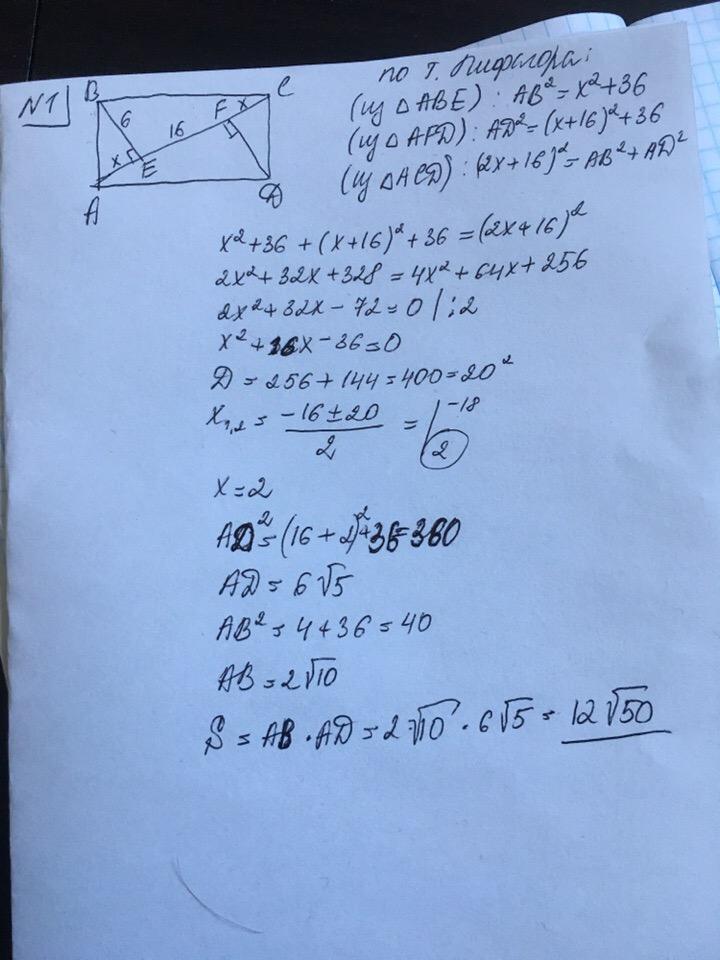 N1
B C
6 16 F x
x E
A D
по т. Пифагора:
(из △ABE): AB² = x²+36
(из △AFD): AD² = (x+16)²+36
(из △ACD): (2x+16)² = AB²+AD²
x²+36 + (x+16)²+36 = (2x+16)²
2x²+32x+328 = 4x²+64x+256
2x²+32x-72=0 |:2
x²+16x-36=0
D = 256+144=400=20²
x₁,₂ = (-16±20)/2 = [-18 2
x=2
AD² = (16+2)²+36=360
AD = 6√5
AB² = 4+36=40
AB = 2√10
S = AB·AD = 2√10·6√5 = 12√50